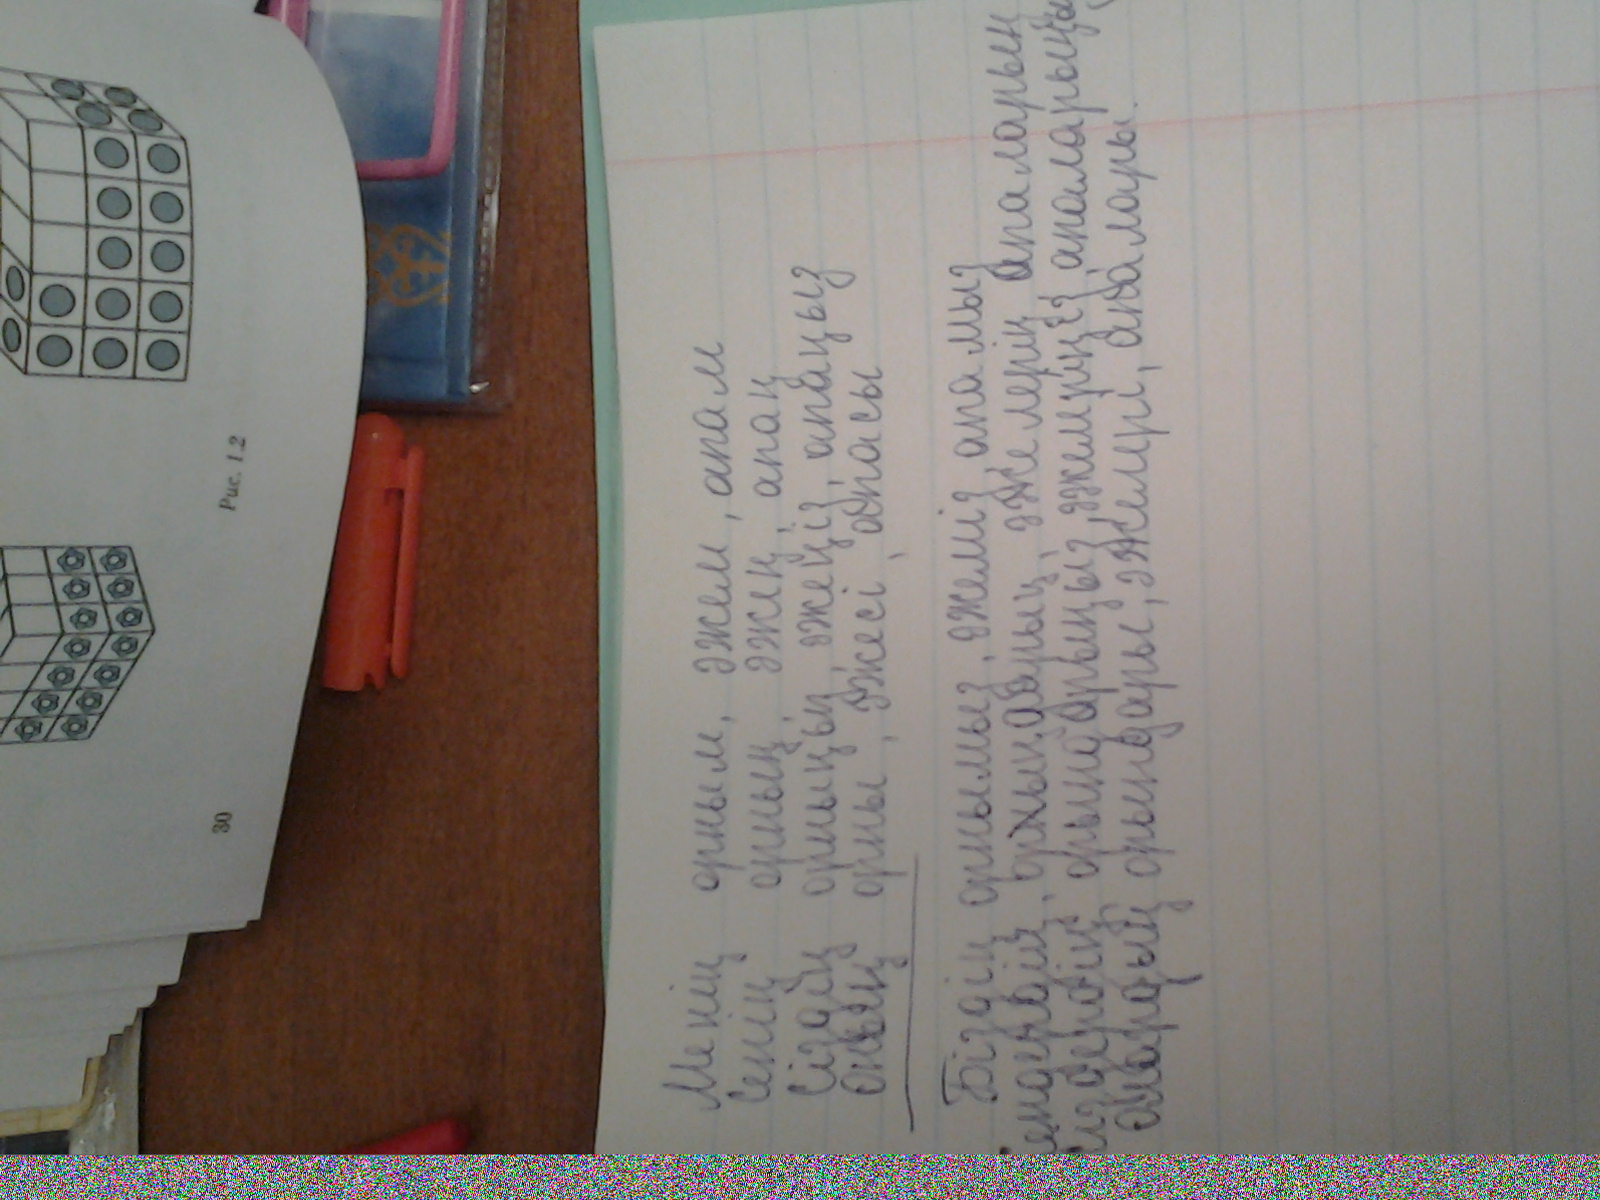 Менің орным, әжем, апам
Сенің орның, әжең, апаң
Сіздің орныңыз, әжеңіз, апаңыз
Оның орны, әжесі, апасы
Біздің орнымыз, әжеміз, апамыз
Сендердің, орындарың, әжелерің апаларың
Сіздердің орындарыңыз, әжелеріңіз апаларыңыз
Олардың орындары, әжелері, апалары.
Рис. 1.2
30